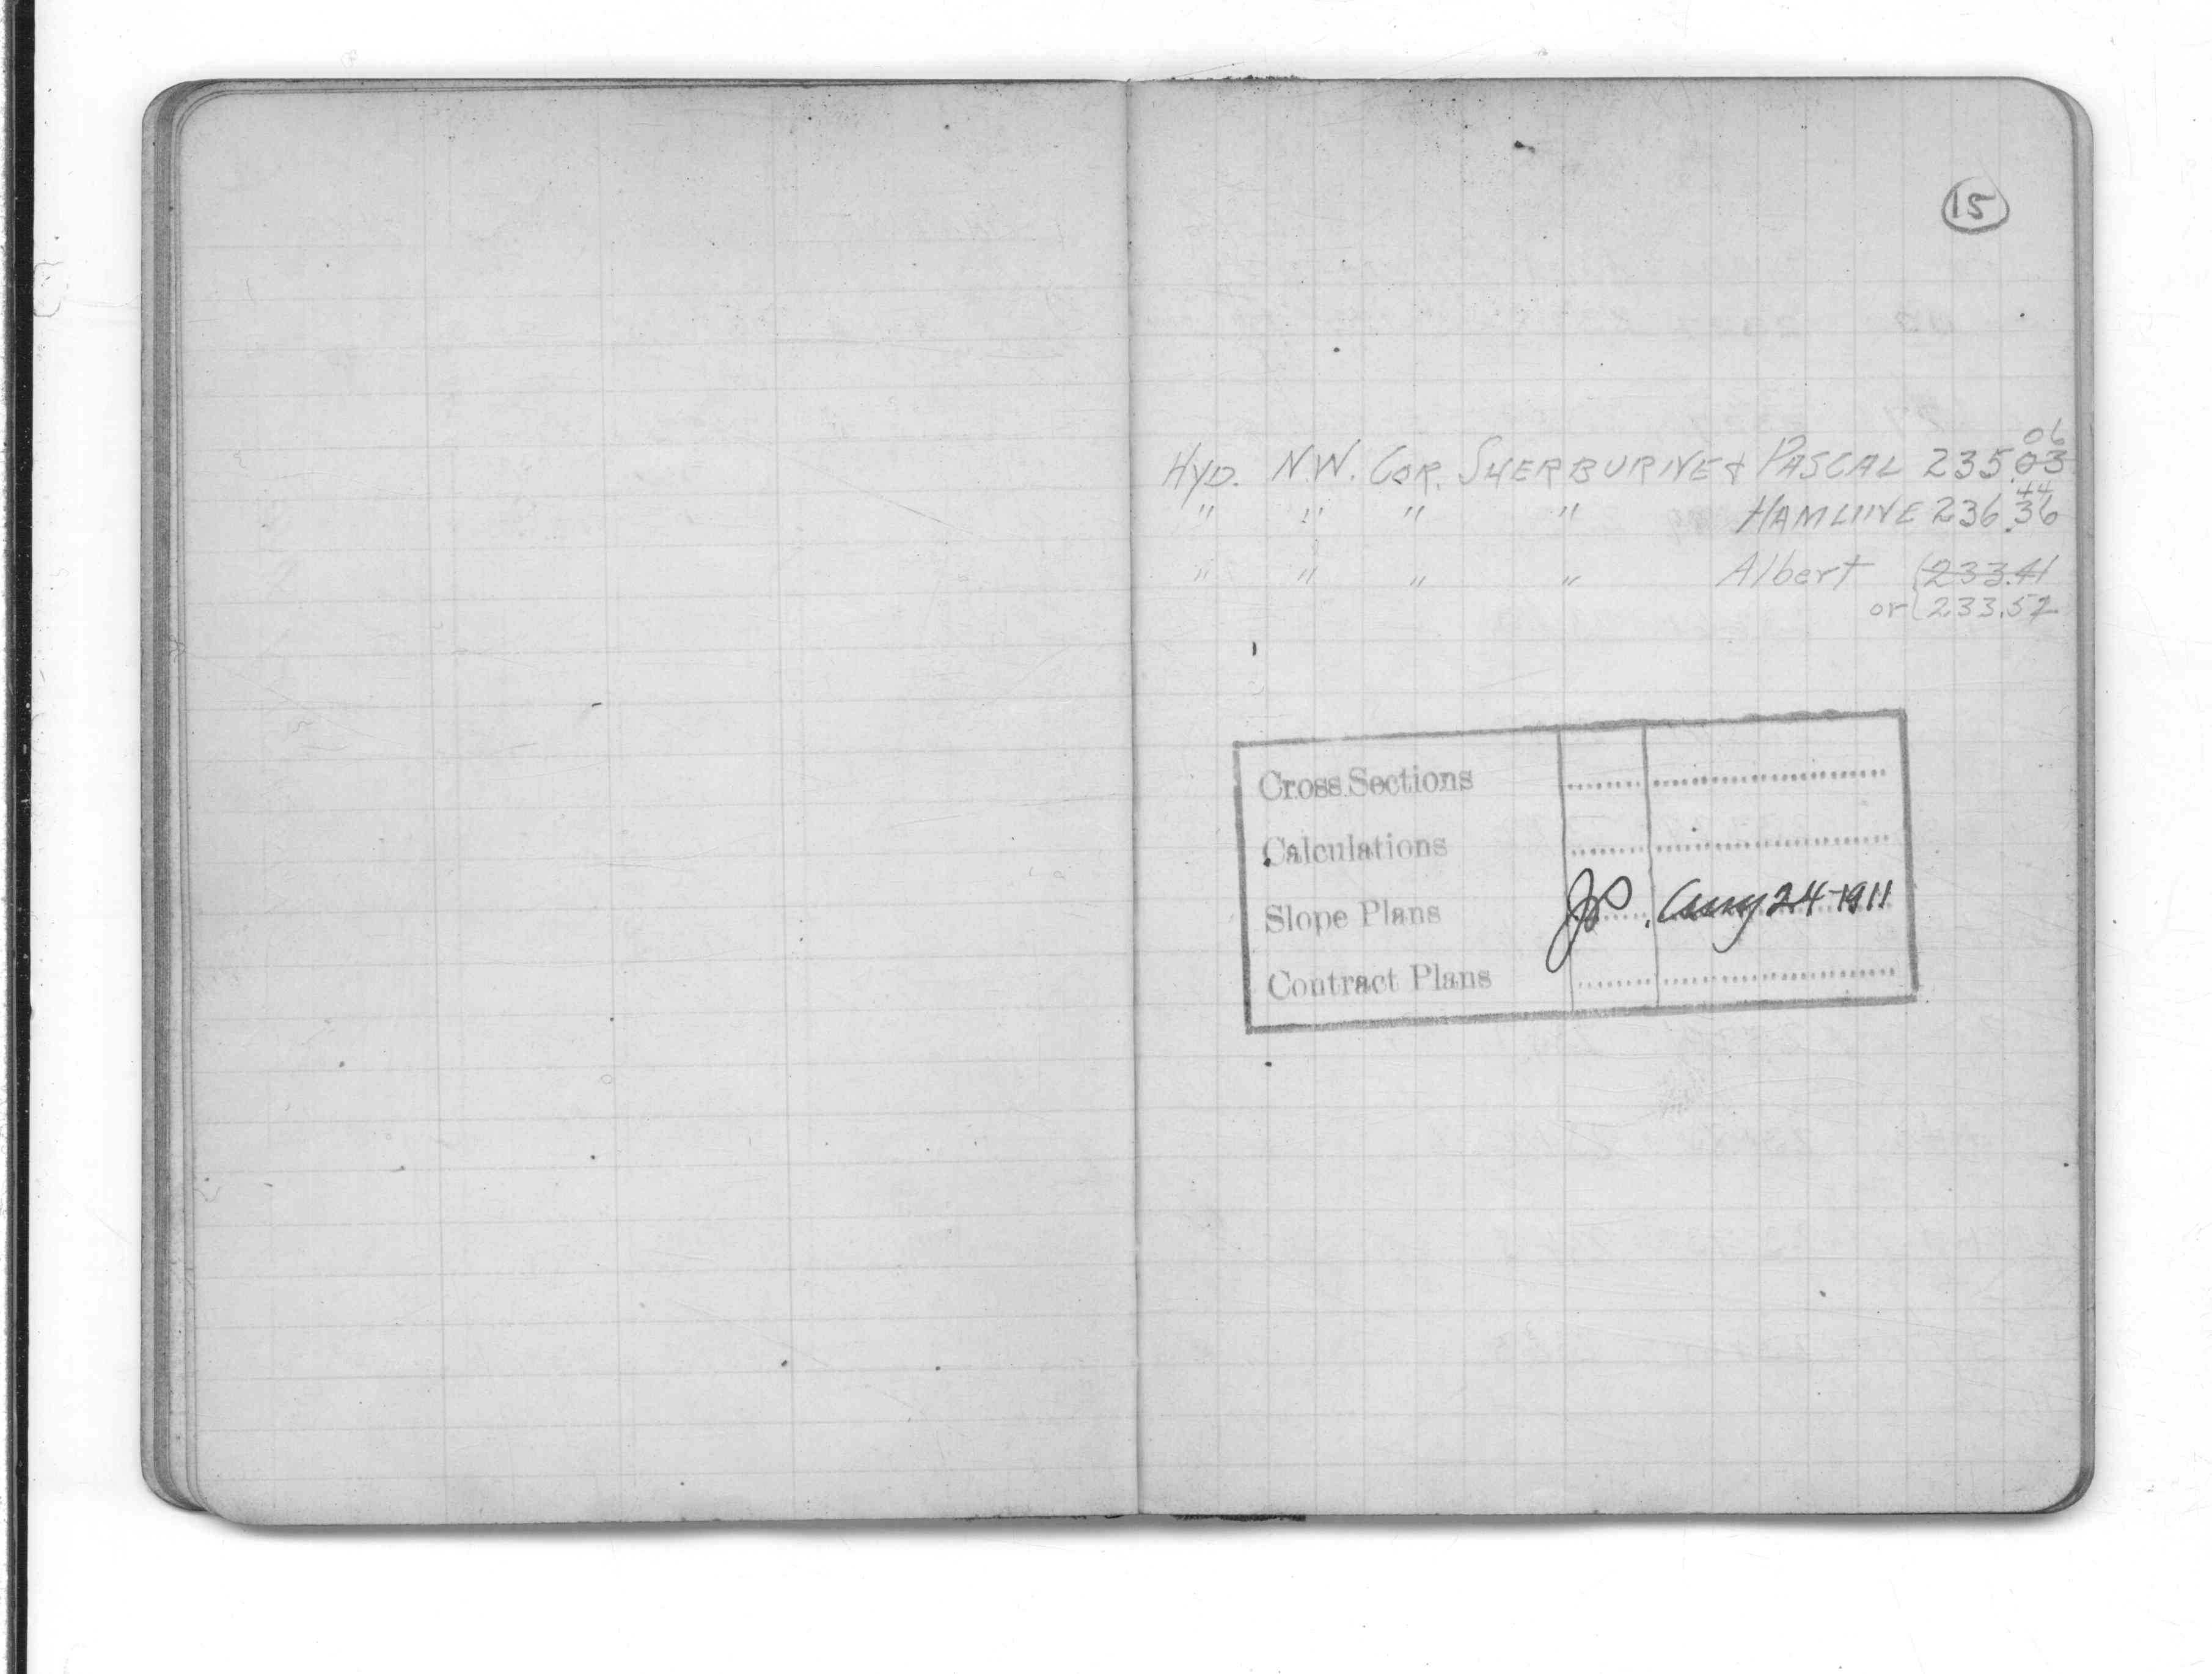 15
06
HYD. N.W. COR. SHERBURNE & PASCAL 235.03
44
" " " " HAMLINE 236.36
" " " " Albert 233.41
or 233.52
Cross Sections
Calculations
Slope Plans Aug 24-1911
Contract Plans